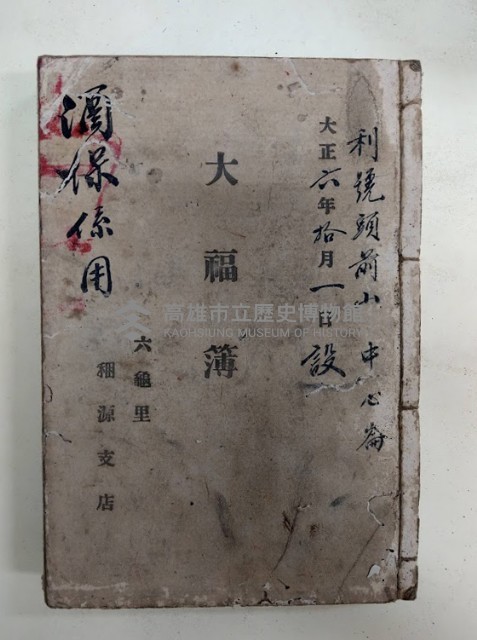 利號頭前小 中心崙
大正六年拾月一日設
大福簿
六龜里
稛源支店
酒保係用
高雄市立歷史博物館
KAOHSIUNG MUSEUM OF HISTORY